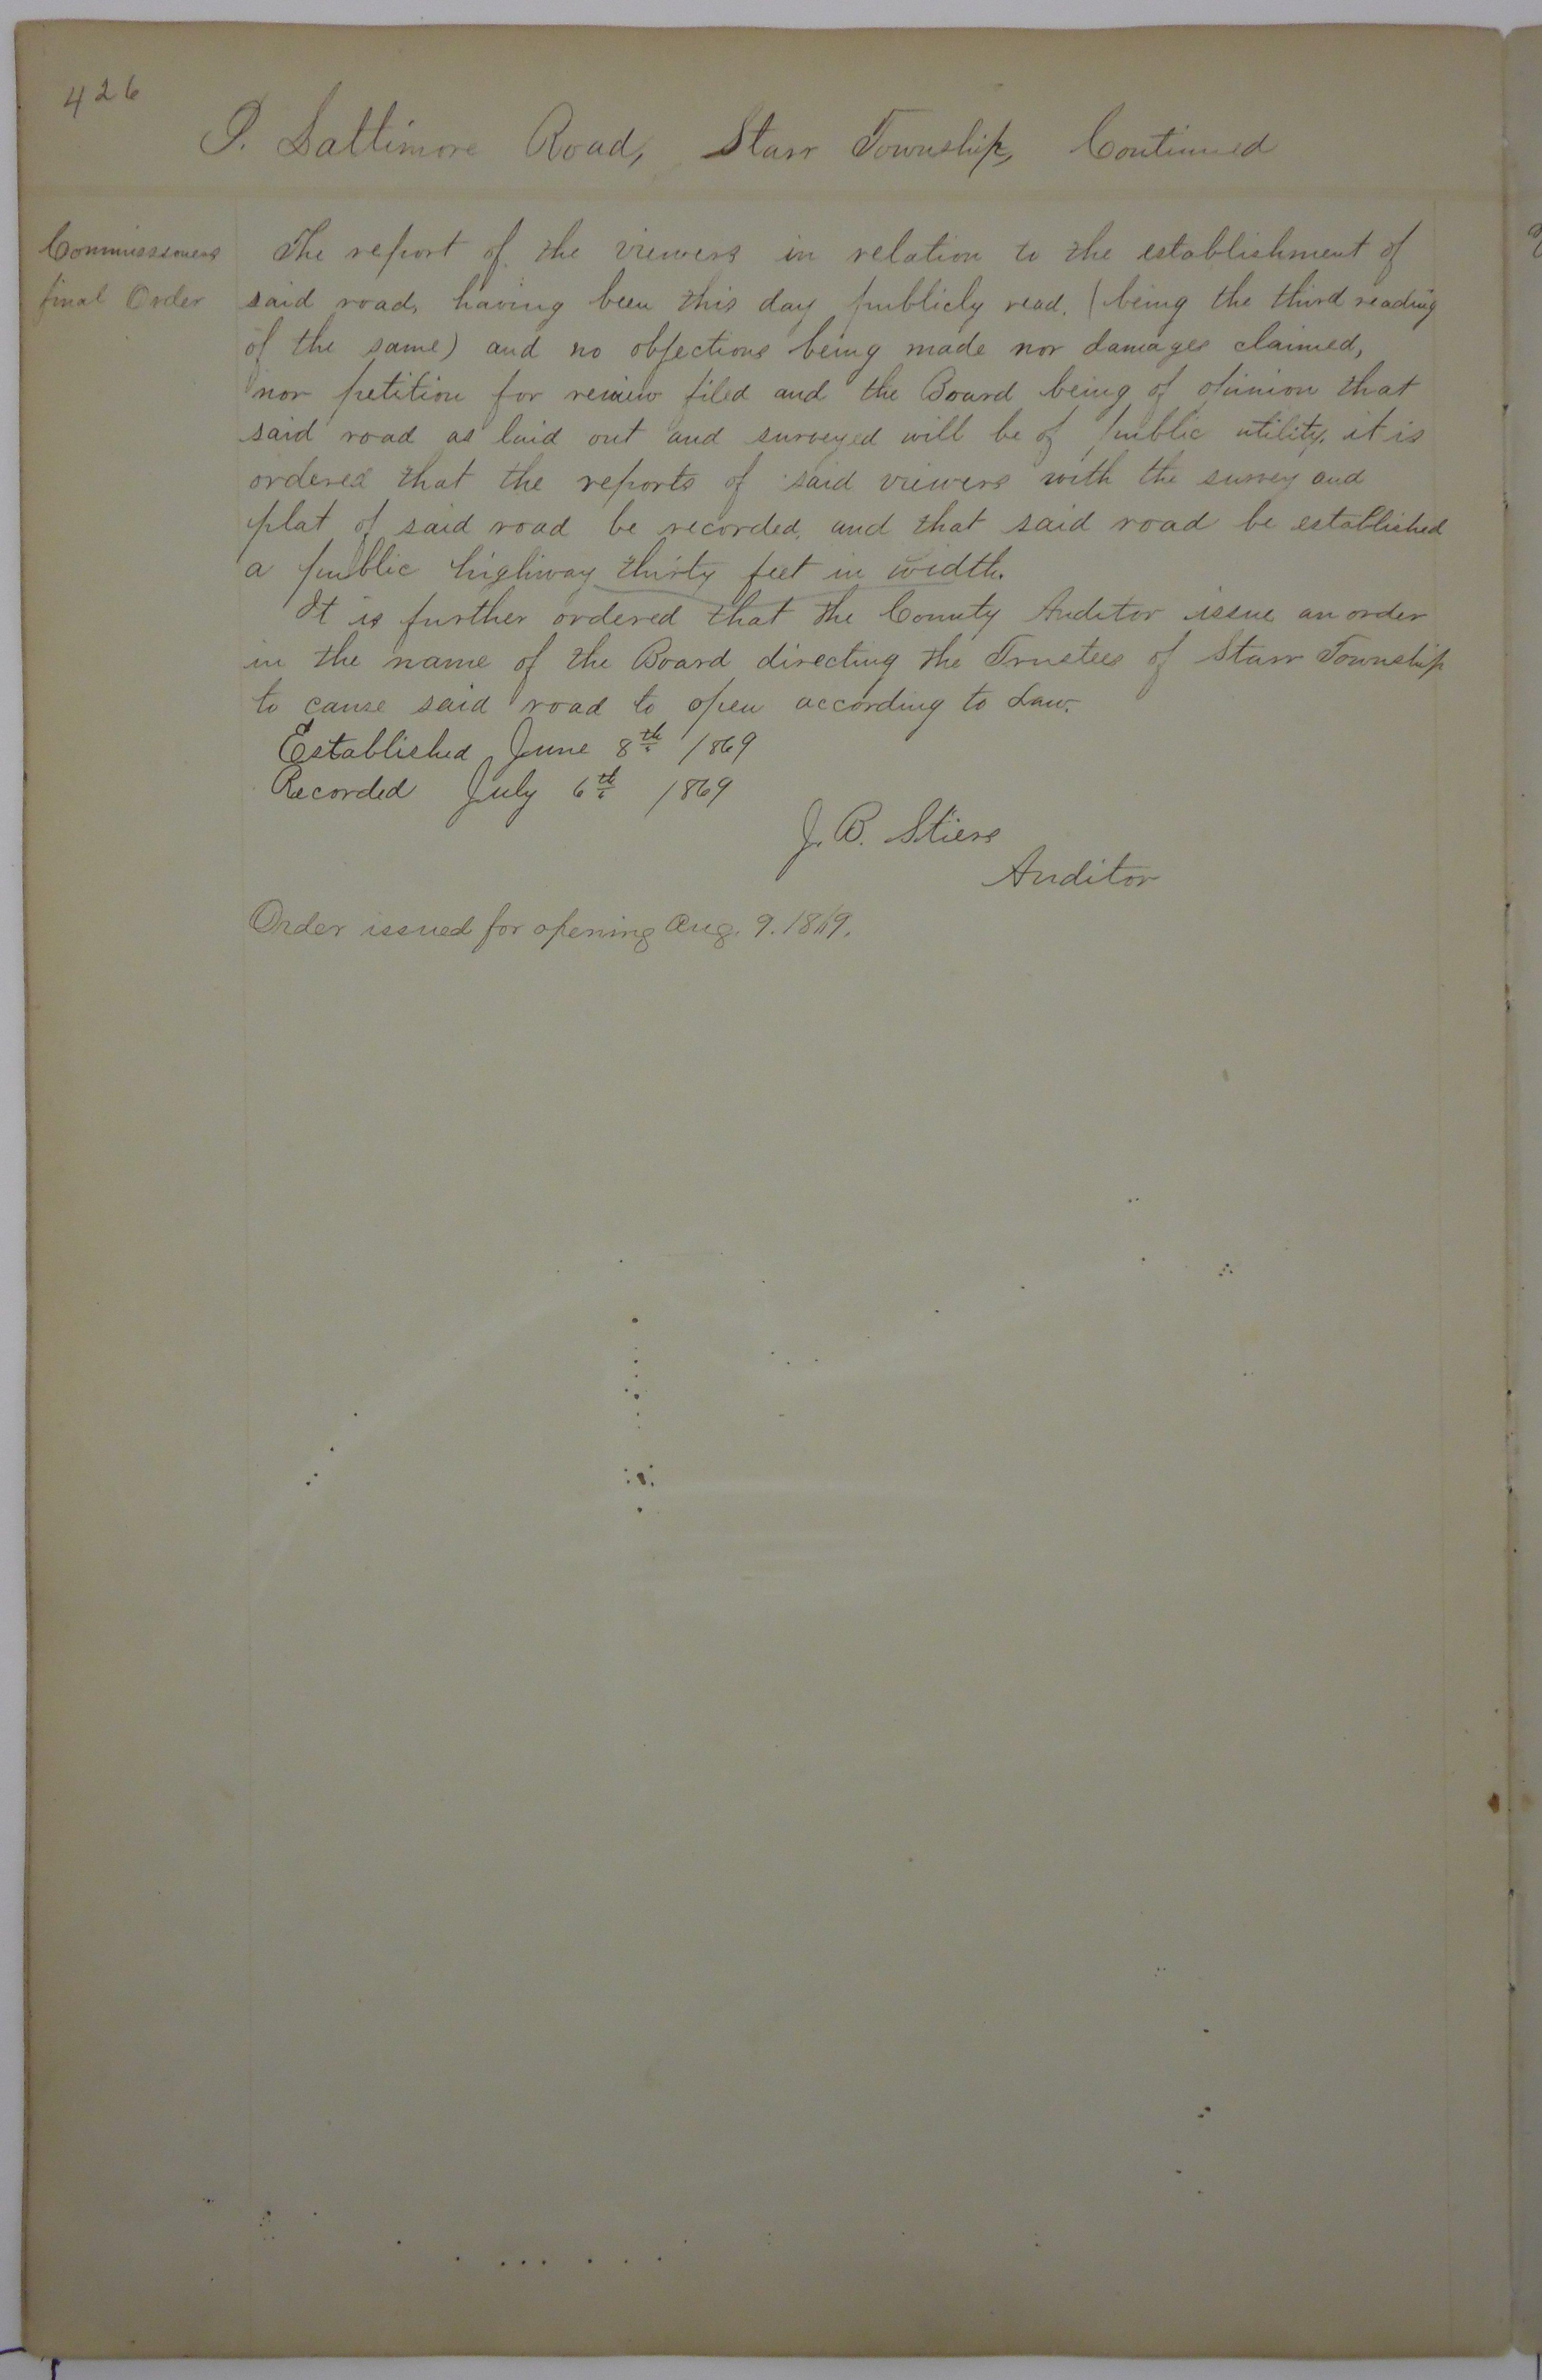 426
P. Lattimore Road, Starr Township, Continued
Commissioners
final Order
The report of the viewers in relation to the establishment of
said road, having been this day publicly read, (being the third reading
of the same) and no objections being made nor damages claimed,
nor petition for review filed and the Board being of opinion that
said road as laid out and surveyed will be of public utility, it is
ordered that the reports of said viewers with the survey and
plat of said road be recorded, and that said road be established
a public highway thirty feet in width.
It is further ordered that the County Auditor issue an order
in the name of the Board directing the Trustees of Starr Township
to cause said road to open according to Law.
Established June 8th 1869
Recorded July 6th 1869
J. B. Stiers
Auditor
Order issued for opening Aug. 9. 1869.